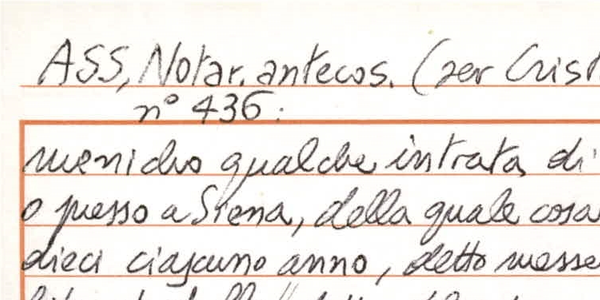 ASS, Notar. antecos. (ser Crist
n° 436:
menicho qualche intrata di
o presso a Siena, della quale cosa
dieci ciascuno anno, detto messe